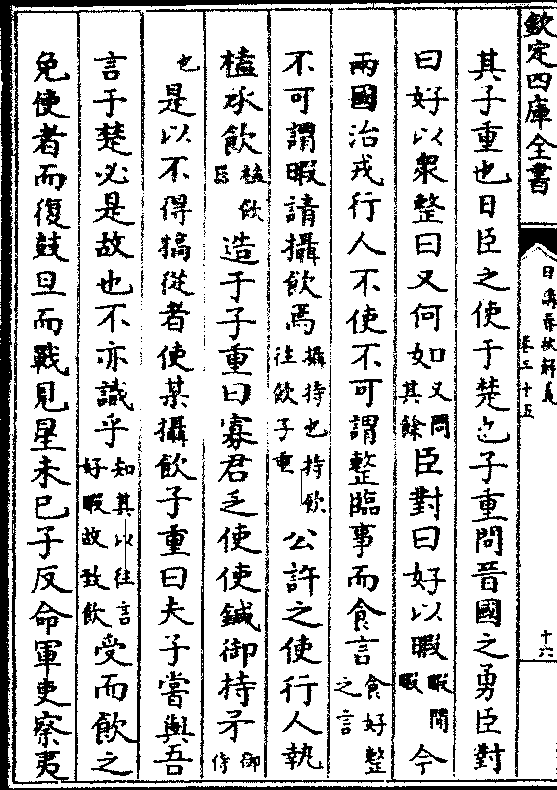 欽定四庫全書
日講春秋解義
卷三十五
十六
其子重也日臣之使于楚也子重問晉國之勇臣對
曰好以衆整曰又何如又問其餘臣對曰好以暇暇閒暇今
兩國治戎行人不使不可謂整臨事而食言食好整之言
不可謂暇請攝飲焉攝持也持飲往飲子重公許之使行人執
榼承飲榼飲器造于子重曰寡君乏使使鍼御持矛御侍
也是以不得犒從者使某攝飲子重曰夫子嘗與吾
言于楚必是故也不亦識乎知其以往言好暇故致飲受而飲之
免使者而復鼓旦而戰見星未已子反命軍吏察夷